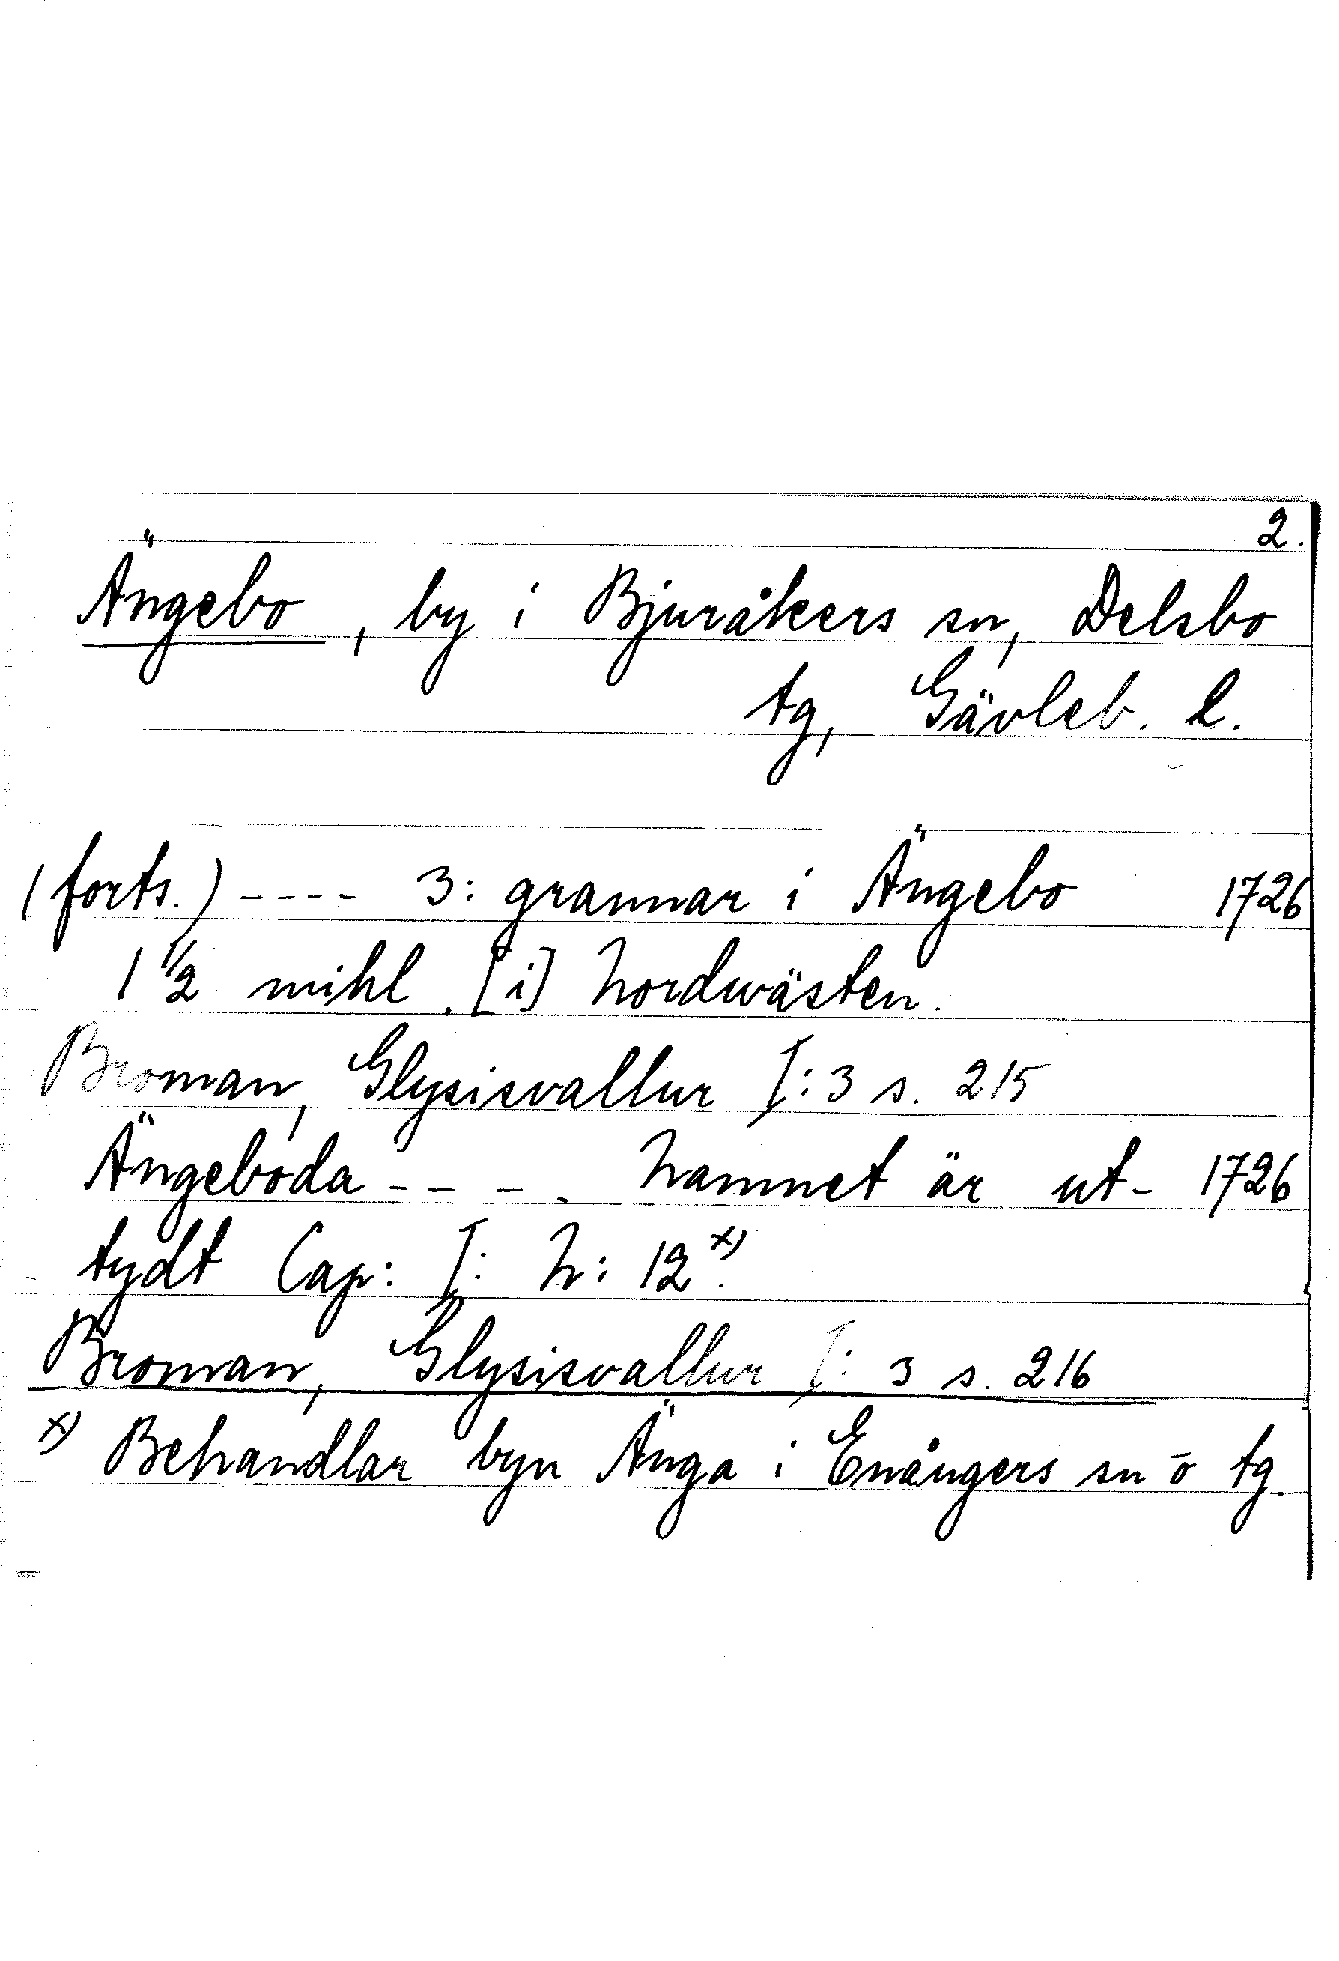 2.
Ängebo, by i Bjuråkers sn, Delsbo
tg, Gävleb. l.
(forts.) ---- 3: grannar i Ängebo 1726
1 1/2 mihl. [i] Nordwästen.
Broman, Glysisvallur I:3 s. 215
Ängeboda - - - . Namnet är ut- 1726
tydt Cap: I: N: 12.x)
Broman, Glysisvallur I: 3 s. 216
x) Behandlar byn Änga i Enångers sn o tg.